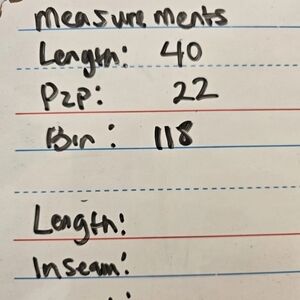 measurements
Length: 40
P2P: 22
Bin: 118
Length:
Inseam: